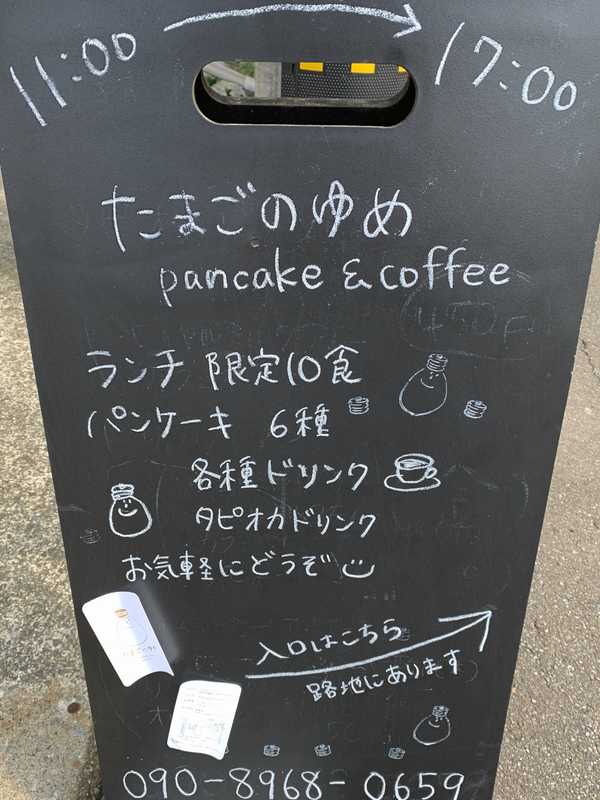 11:00 → 17:00
たまごのゆめ
pancake & coffee
ランチ 限定10食
パンケーキ 6種
各種ドリンク
タピオカドリンク
お気軽にどうぞ
入口はこちら
路地にあります
090-8968-0659